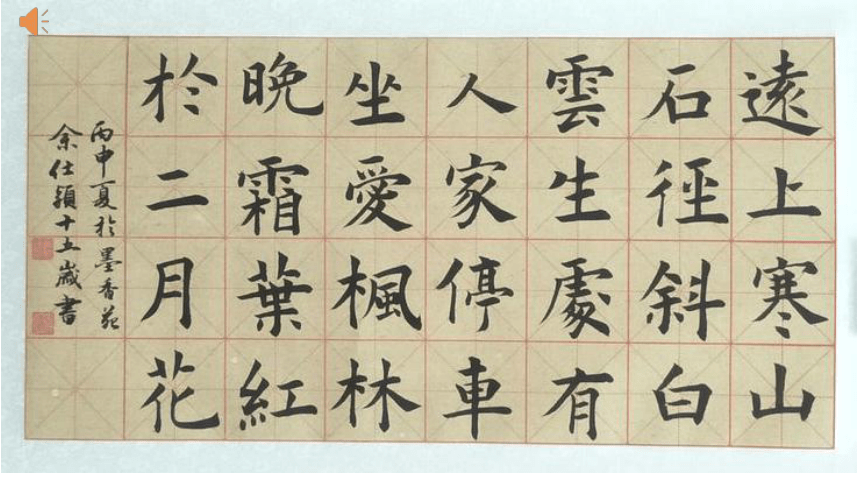 遠上寒山
石徑斜白
雲生處有
人家停車
坐愛楓林
晚霜葉紅
於二月花
丙申夏於墨香苑
余仕穎十五歲書